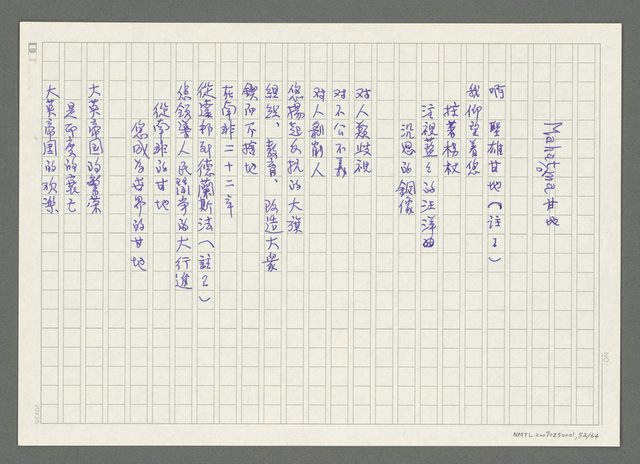 Mahatma 甘地
啊 聖雄甘地(註1)
我仰望着您
拄著柺杖
注視藍々的汪洋
沉思的銅像
对人歧視
对不公不義
对人剝削人
您揚起反抗的大旗
組織、教育、改造大衆
鍥而不捨地
在南非二十二年
從達邦到德蘭斯法(註2)
您領導人民鬪爭的大行進
從南非的甘地
您成为世界的甘地
大英帝国的繁荣
是印度的衰亡
大英帝国的欢樂
NO.
20×25
NMTL 20070250001, 52/64